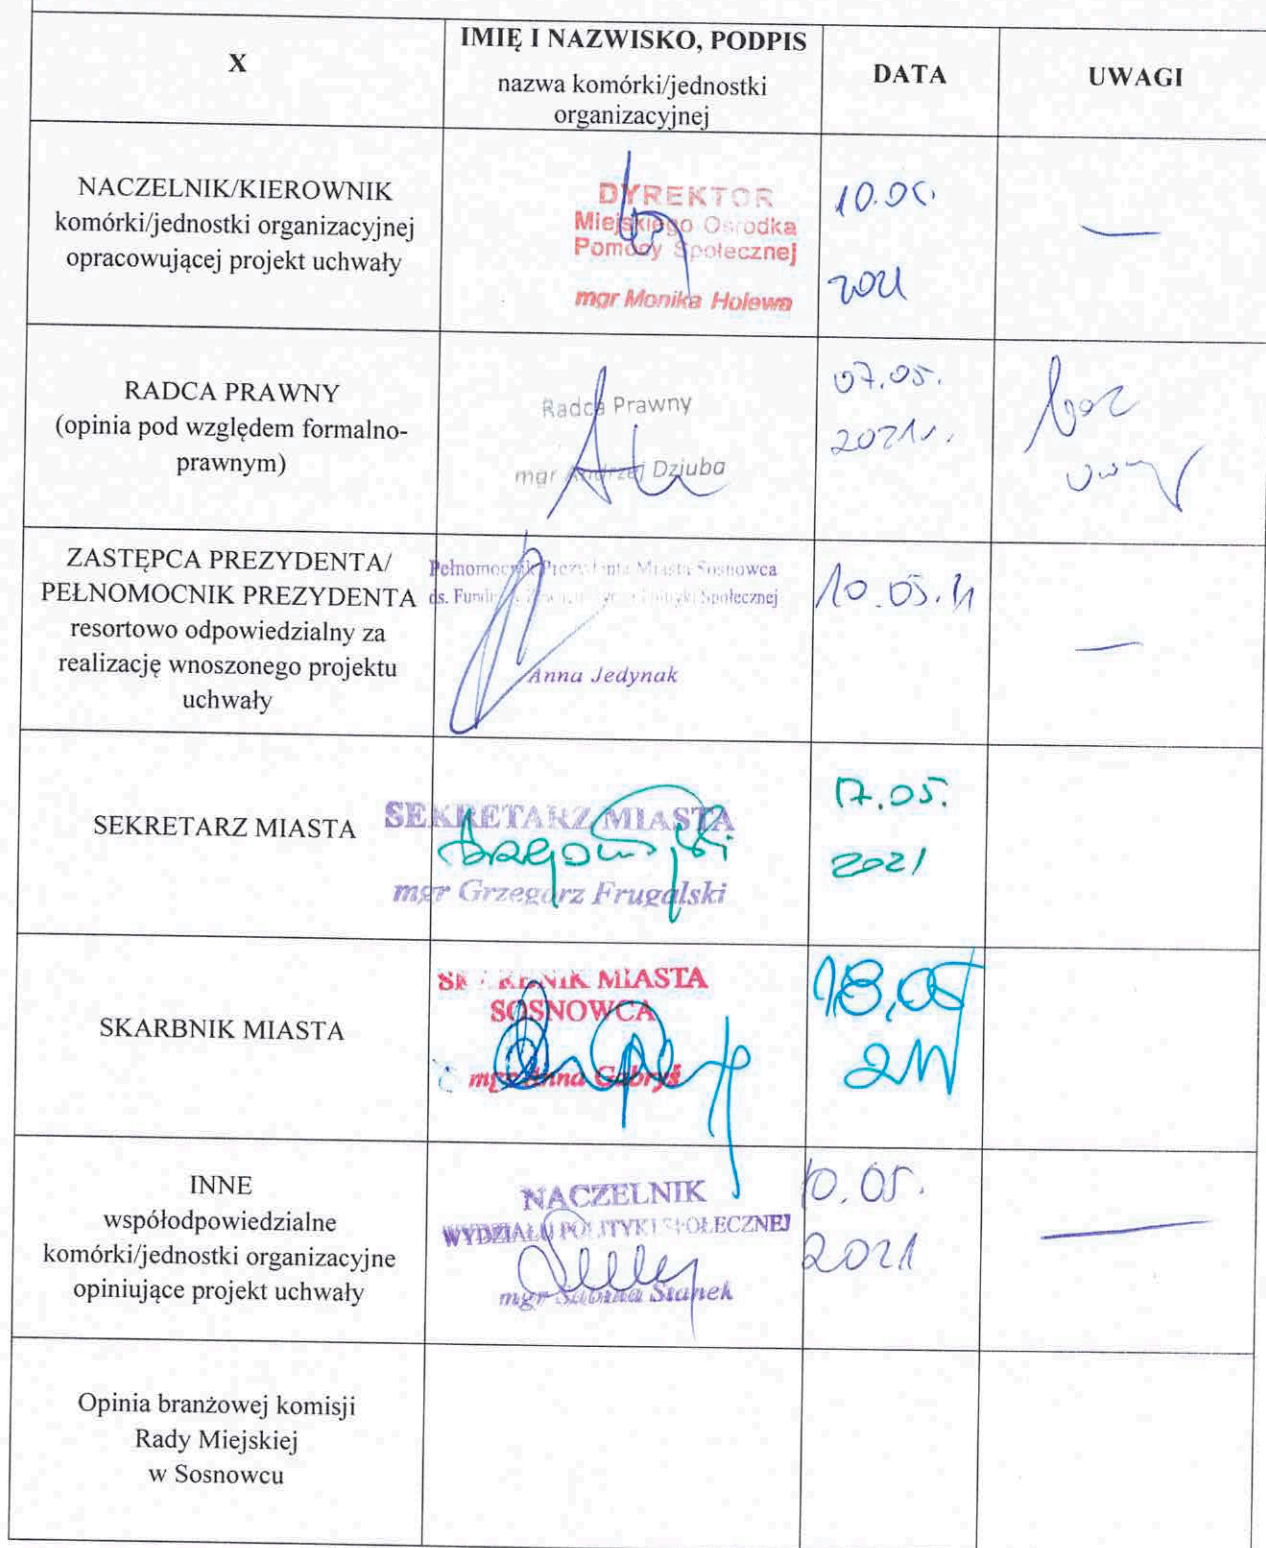 X
IMIĘ I NAZWISKO, PODPIS
nazwa komórki/jednostki
organizacyjnej
DATA
UWAGI
NACZELNIK/KIEROWNIK
komórki/jednostki organizacyjnej
opracowującej projekt uchwały
DYREKTOR
Miejskiego Ośrodka
Pomocy Społecznej
mgr Monika Holewa
10.05.
2021
RADCA PRAWNY
(opinia pod względem formalno-
prawnym)
Radca Prawny
mgr Andrzej Dziuba
07.05.
2021r.
bez
uwag
ZASTĘPCA PREZYDENTA/
PEŁNOMOCNIK PREZYDENTA
resortowo odpowiedzialny za
realizację wnoszonego projektu
uchwały
Pełnomocnik Prezydenta Miasta Sosnowca
ds. Polityki Społecznej
Anna Jedynak
10.05.21
SEKRETARZ MIASTA
SEKRETARZ MIASTA
mgr Grzegorz Frugalski
17.05.
2021
SKARBNIK MIASTA
SKARBNIK MIASTA
SOSNOWCA
mgr Anna Gabryś
18.05
INNE
współodpowiedzialne
komórki/jednostki organizacyjne
opiniujące projekt uchwały
NACZELNIK
WYDZIAŁU POLITYKI SPOŁECZNEJ
mgr Sabina Stanek
10.05.
2021
Opinia branżowej komisji
Rady Miejskiej
w Sosnowcu